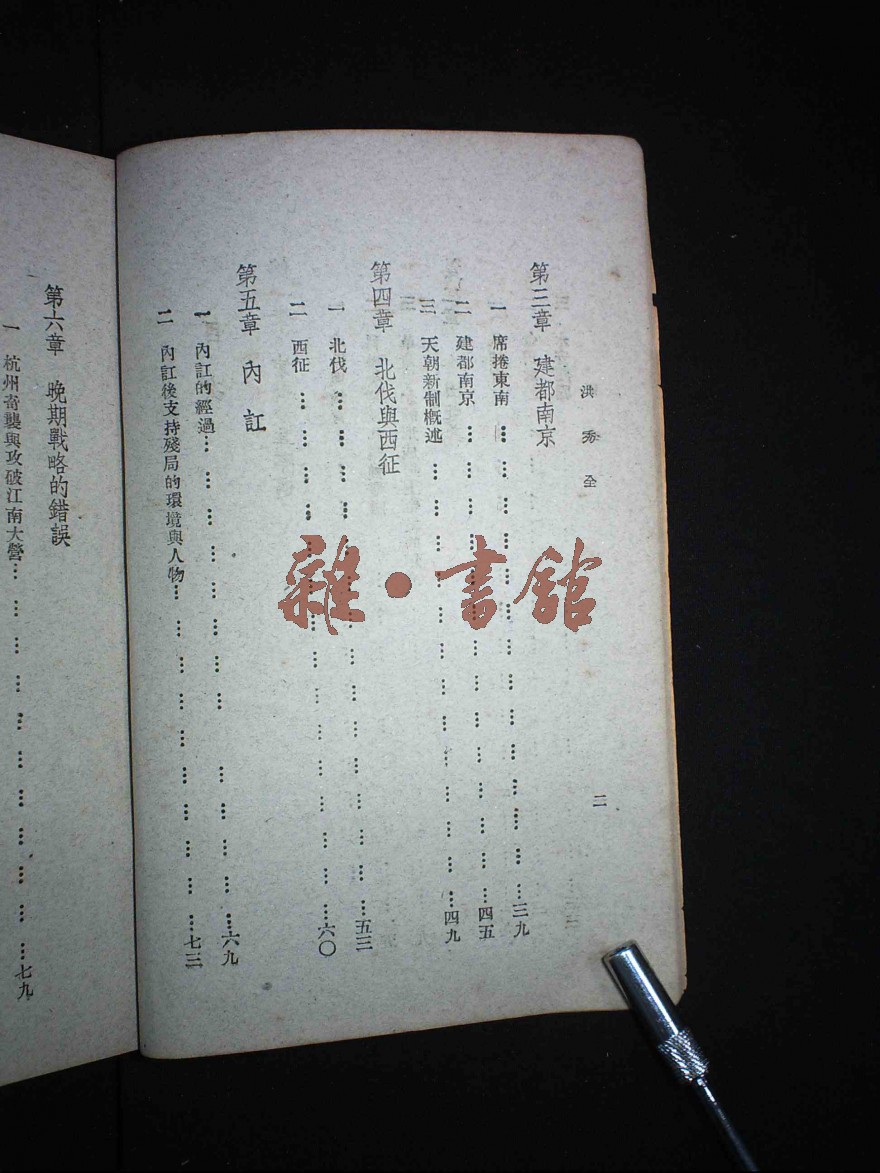 洪秀全
二
第三章 建都南京
一 席捲東南…………三九
二 建都南京…………四五
三 天朝新制概述…………四九
第四章 北伐與西征
一 北伐…………五三
二 西征…………六〇
第五章 內訌
一 內訌的經過…………六九
二 內訌後支持殘局的環境與人物…………七三
第六章 晚期戰略的錯誤
一 杭州奇襲與攻破江南大營…………七九
雜·書館